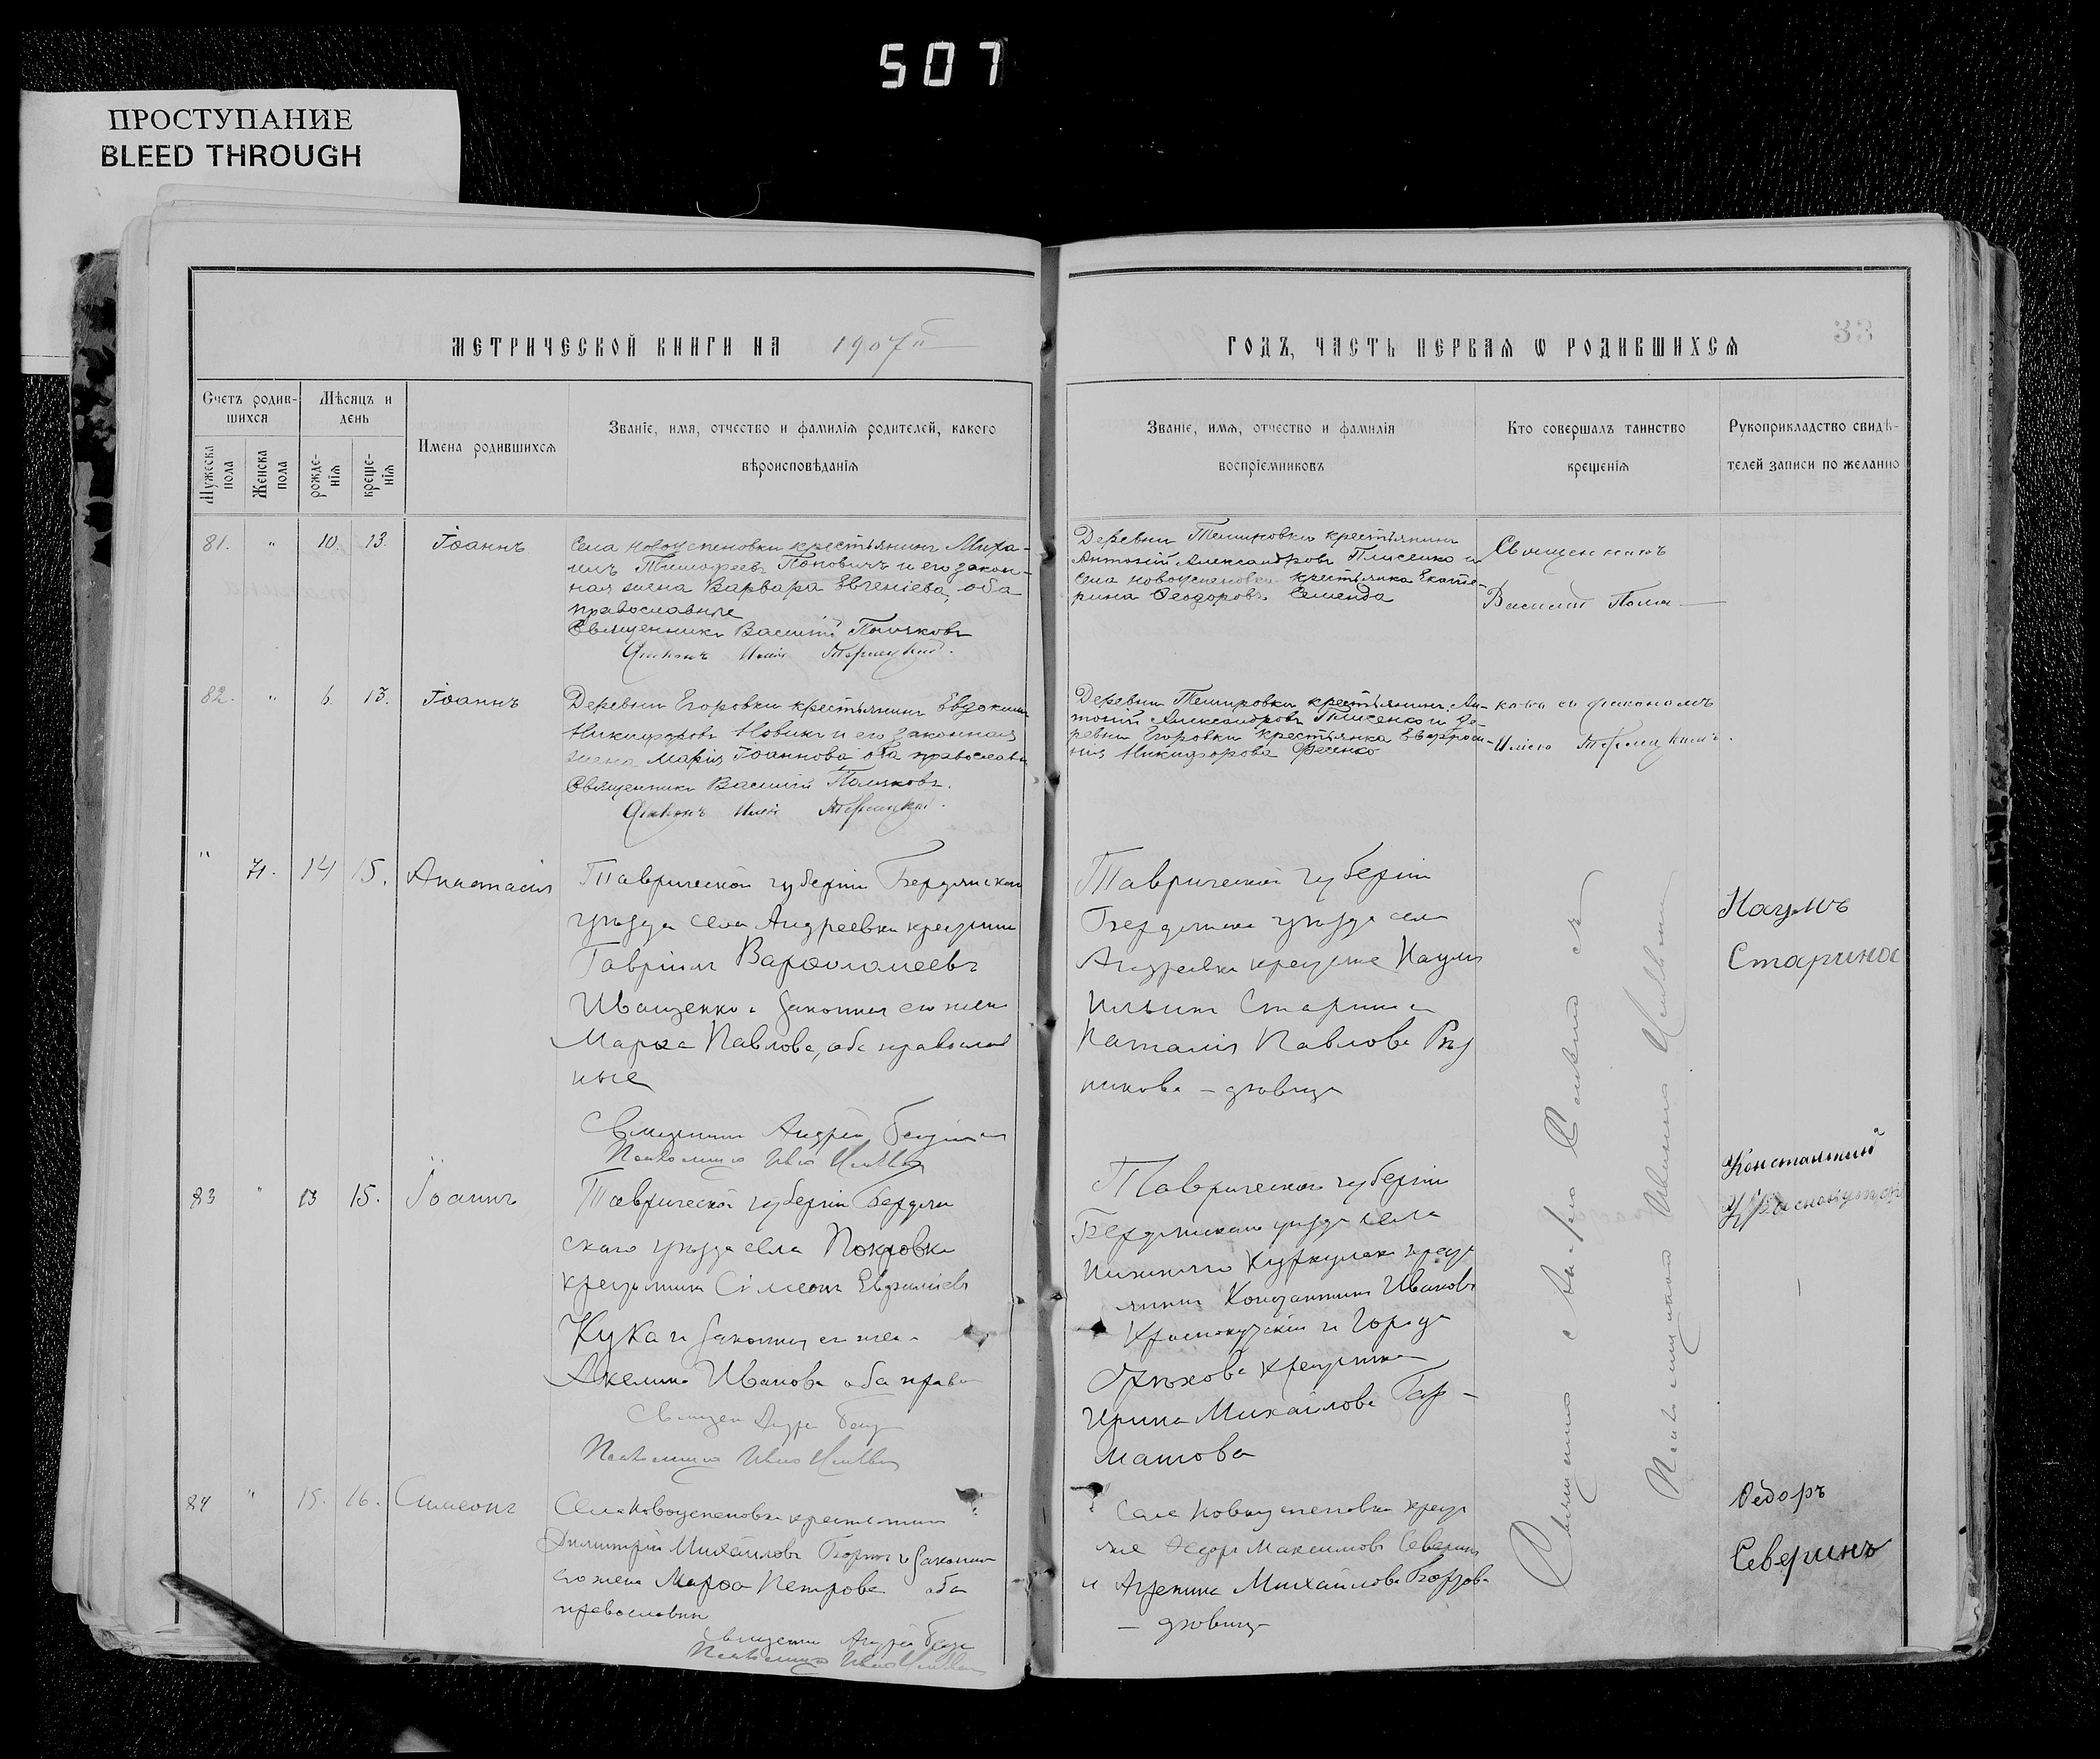 507
ПРОСТУПАНИЕ
BLEED THROUGH
МЕТРИЧЕСКОЙ КНИГИ НА 1907й
ГОДЪ, ЧАСТЬ ПЕРВАЯ Ѡ РОДИВШИХСЯ
33
Счетъ родив-
шихся
Мѣсяцъ и
день
Мужеска
пола
Женска
пола
рожде-
нія
креще-
нія
Имена родившихся
Званіе, имя, отчество и фамилія родителей, какого
вѣроисповѣданія
Званіе, имя, отчество и фамилія
воспріемниковъ
Кто совершалъ таинство
крещенія
Рукоприкладство свидѣ-
телей записи по желанію
81. " 10. 13. Іоаннъ
Села Новоуспеновки крестьянинъ Миха-
илъ Тимофеевъ Поповичъ и его закон-
ная жена Варвара Евгеніева, оба
православные
Священникъ Василій Поляковъ
Діаконъ Илія
Деревни крестьянинъ
Антоній Александровъ и
села Новоуспеновки крестьянка Екате-
рина Ѳеодорова
Священникъ
Василій
82. " 6. 13. Іоаннъ
Деревни Егоровки крестьянинъ Евдокимъ
Никифоровъ Новикъ и его законная
жена Марія Іоаннова оба православн
Священникъ Василій Поляковъ.
Діаконъ Илія
Деревни Темировки крестьянинъ Ан-
тоній Александровъ и де-
ревни Егоровки крестьянка Евфроси-
нія Никифорова Фесенко
ковъ съ діакономъ
Иліею
" 71. 14 15. Анастасія
Таврической губерніи Бердянскаго
уѣзда села Андреевки крестьянинъ
Гавріилъ Варѳоломеевъ
Иващенко и законная его жена
Марѳа Павлова, оба православ
ные
Священникъ Андрей
Псаломщикъ
Таврической губерніи
Бердянскаго уѣзда села
Андреевки крестьяне Наумъ
Ильинъ Старина и
Наталія Павлова Рѣз
никова – дѣвица
Наумъ
Старина
83 " 13 15. Іоаннъ
Таврической губерніи Бердян
скаго уѣзда села Покровки
крестьянинъ Симеонъ Евфиміевъ
Кука и законная его жена
Акелина Иванова оба право
Псаломщикъ
Таврической губерніи
Бердянскаго уѣзда села
Нижняго Куркулака крест
янинъ Константинъ Ивановъ
Краснокутскій и города
Орѣхова крестьянка
Ирина Михайлова Гар-
машова
Священникъ
Псаломщикъ
Константинъ
Краснокутскій
84 " 15. 16. Симеонъ
Села Новоуспеновки крестьянинъ
Димитрій Михайловъ и законная
его жена Марѳа Петрова оба
православны
Священникъ Андрей
Псаломщикъ
Села Новоуспеновки крест
яне Ѳедоръ Максимовъ Северинъ
и Агрепина Михайлова
– дѣвица
Ѳедоръ
Северинъ